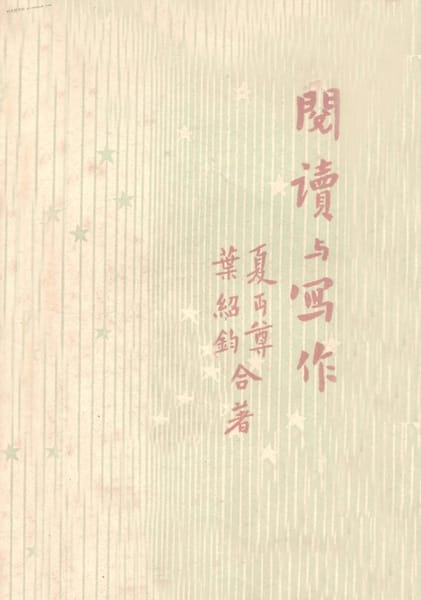 閱讀与写作
夏丏尊
葉紹鈞
合著